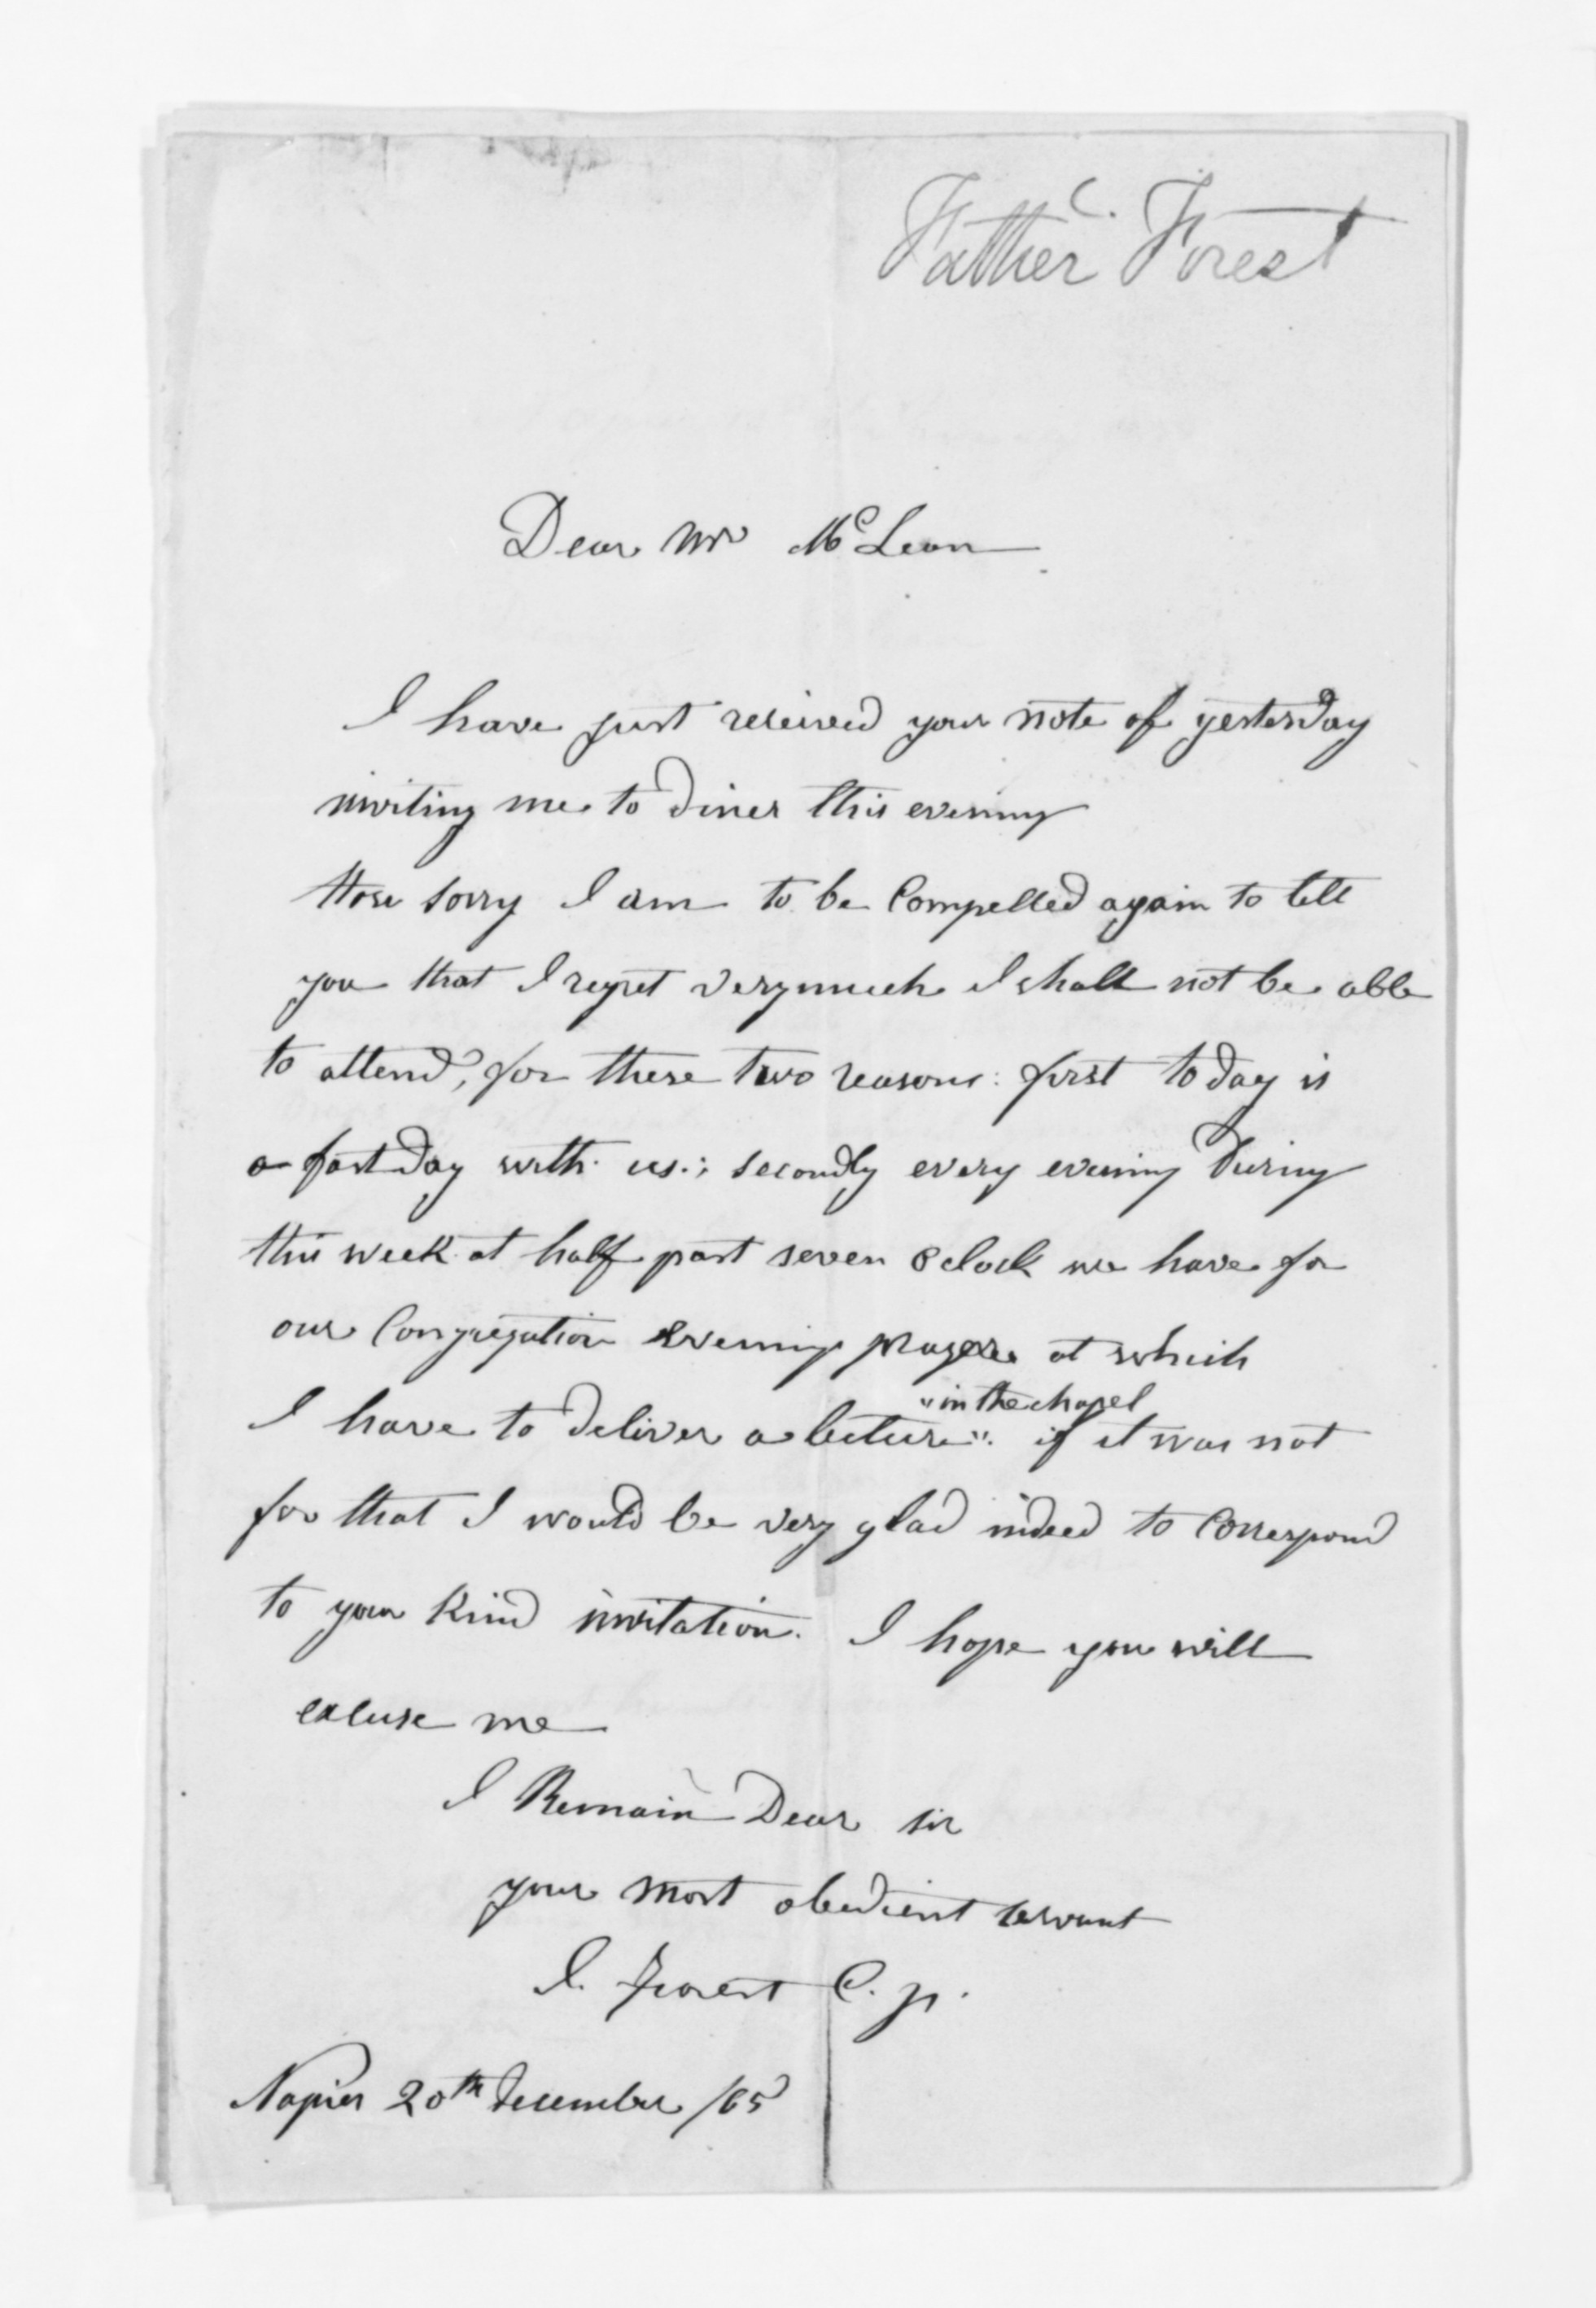 Father C. Forest
Dear Mr McLean
I have just received your note of yesterday
inviting me to diner this evening
sorry I am to be Compelled again to tell
you that I regret very much I shall not be able
to attend, for these two reasons: first to day is
a fast day with us; secondly every evening during
this week at half past seven o clock we have for
our Congregation Evening prayers at which
I have to deliver a lecture "in the chapel". if it was not
for that I would be very glad indeed to Correspond
to your Kind invitation. I hope you will
excuse me
I Remain Dear sir
your most obedient servant
J. Forest C. p.
Napier 20th December /65